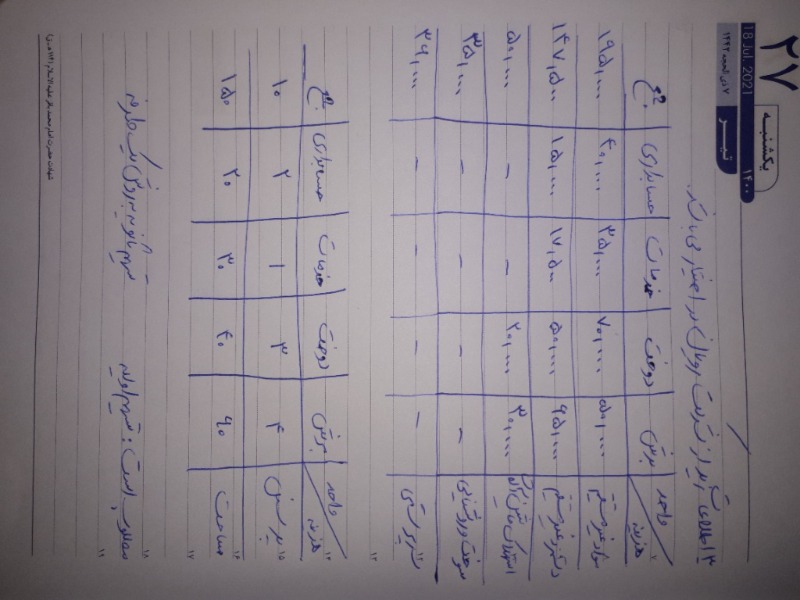 ۲۷
یکشنبه
18 Jul. 2021 ۱۴۰۰
۷ ذی الحجه ۱۴۴۲ تیر
اطلاعات زیر از شرکت رویان در اختیار می باشد.
هزینه واحد برش دوخت خدمات حسابداری جمع
مواد غیر مستقیم ۵۰,۰۰۰ ۷۰,۰۰۰ ۳۵,۰۰۰ ۴۰,۰۰۰ ۱۹۵,۰۰۰
دستمزد غیر مستقیم ۶۵,۰۰۰ ۵۰,۰۰۰ ۱۷,۵۰۰ ۱۵,۰۰۰ ۱۴۷,۵۰۰
استهلاک ماشین آلات ۳۰,۰۰۰ ۲۰,۰۰۰ - - ۵۰,۰۰۰
سوخت و روشنایی - - - - ۳۵,۰۰۰
سرپرستی - - - - ۳۶,۰۰۰
هزینه واحد برش دوخت خدمات حسابداری جمع
پرسنل ۴ ۳ ۱ ۲ ۱۰
مساحت ۶۰ ۴۰ ۳۰ ۲۰ ۱۵۰
مطلوب است: تسهیم اولیه تسهیم ثانویه به روش یک طرفه